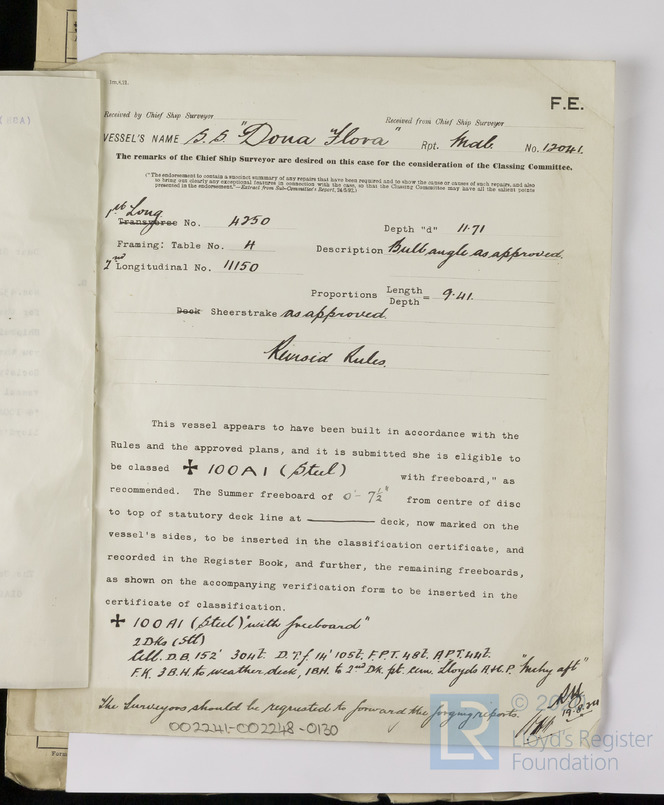 1m,4,21.
F.E.
Received by Chief Ship Surveyor
Received from Chief Ship Surveyor
VESSEL'S NAME S.S. "Dona Flora" Rpt. Mdb. No. 12041.
The remarks of the Chief Ship Surveyor are desired on this case for the consideration of the Classing Committee.
("The endorsement to contain a succinct summary of any repairs that have been required and to show the cause or causes of such repairs, and also
to bring out clearly any exceptional features in connection with the case, so that the Classing Committee may have all the salient points
presented in the endorsement."—Extract from Sub-Committee's Report,
1st Long
Transverse No. 4250
Depth "d" 11.71
Framing: Table No. H
Description Bulb angle as approved.
2nd Longitudinal No. 11150
Proportions Length
Depth = 9.41.
Deck Sheerstrake as approved.
Revised Rules.
This vessel appears to have been built in accordance with the
Rules and the approved plans, and it is submitted she is eligible to
be classed ✠ 100A1 (Steel) with freeboard," as
recommended. The Summer freeboard of 0'- 7½" from centre of disc
to top of statutory deck line at deck, now marked on the
vessel's sides, to be inserted in the classification certificate, and
recorded in the Register Book, and further, the remaining freeboards,
as shown on the accompanying verification form to be inserted in the
certificate of classification.
✠ 100A1 (Steel) "with freeboard"
2 Dks (Stl)
Cell. D.B. 152' 304t. D.T.f 14' 105t. F.P.T. 48t. A.P.T. 44t.
F.K. 3 B.H. to weather deck, 1 BH. to 2nd Dk. pt. Cem. Lloyds A & C.P. "Mchy aft"
The Surveyors should be requested to forward the forging reports.
19.8.24
002241-002248-0130
Form
LR
© 20
Lloyd's Register
Foundation